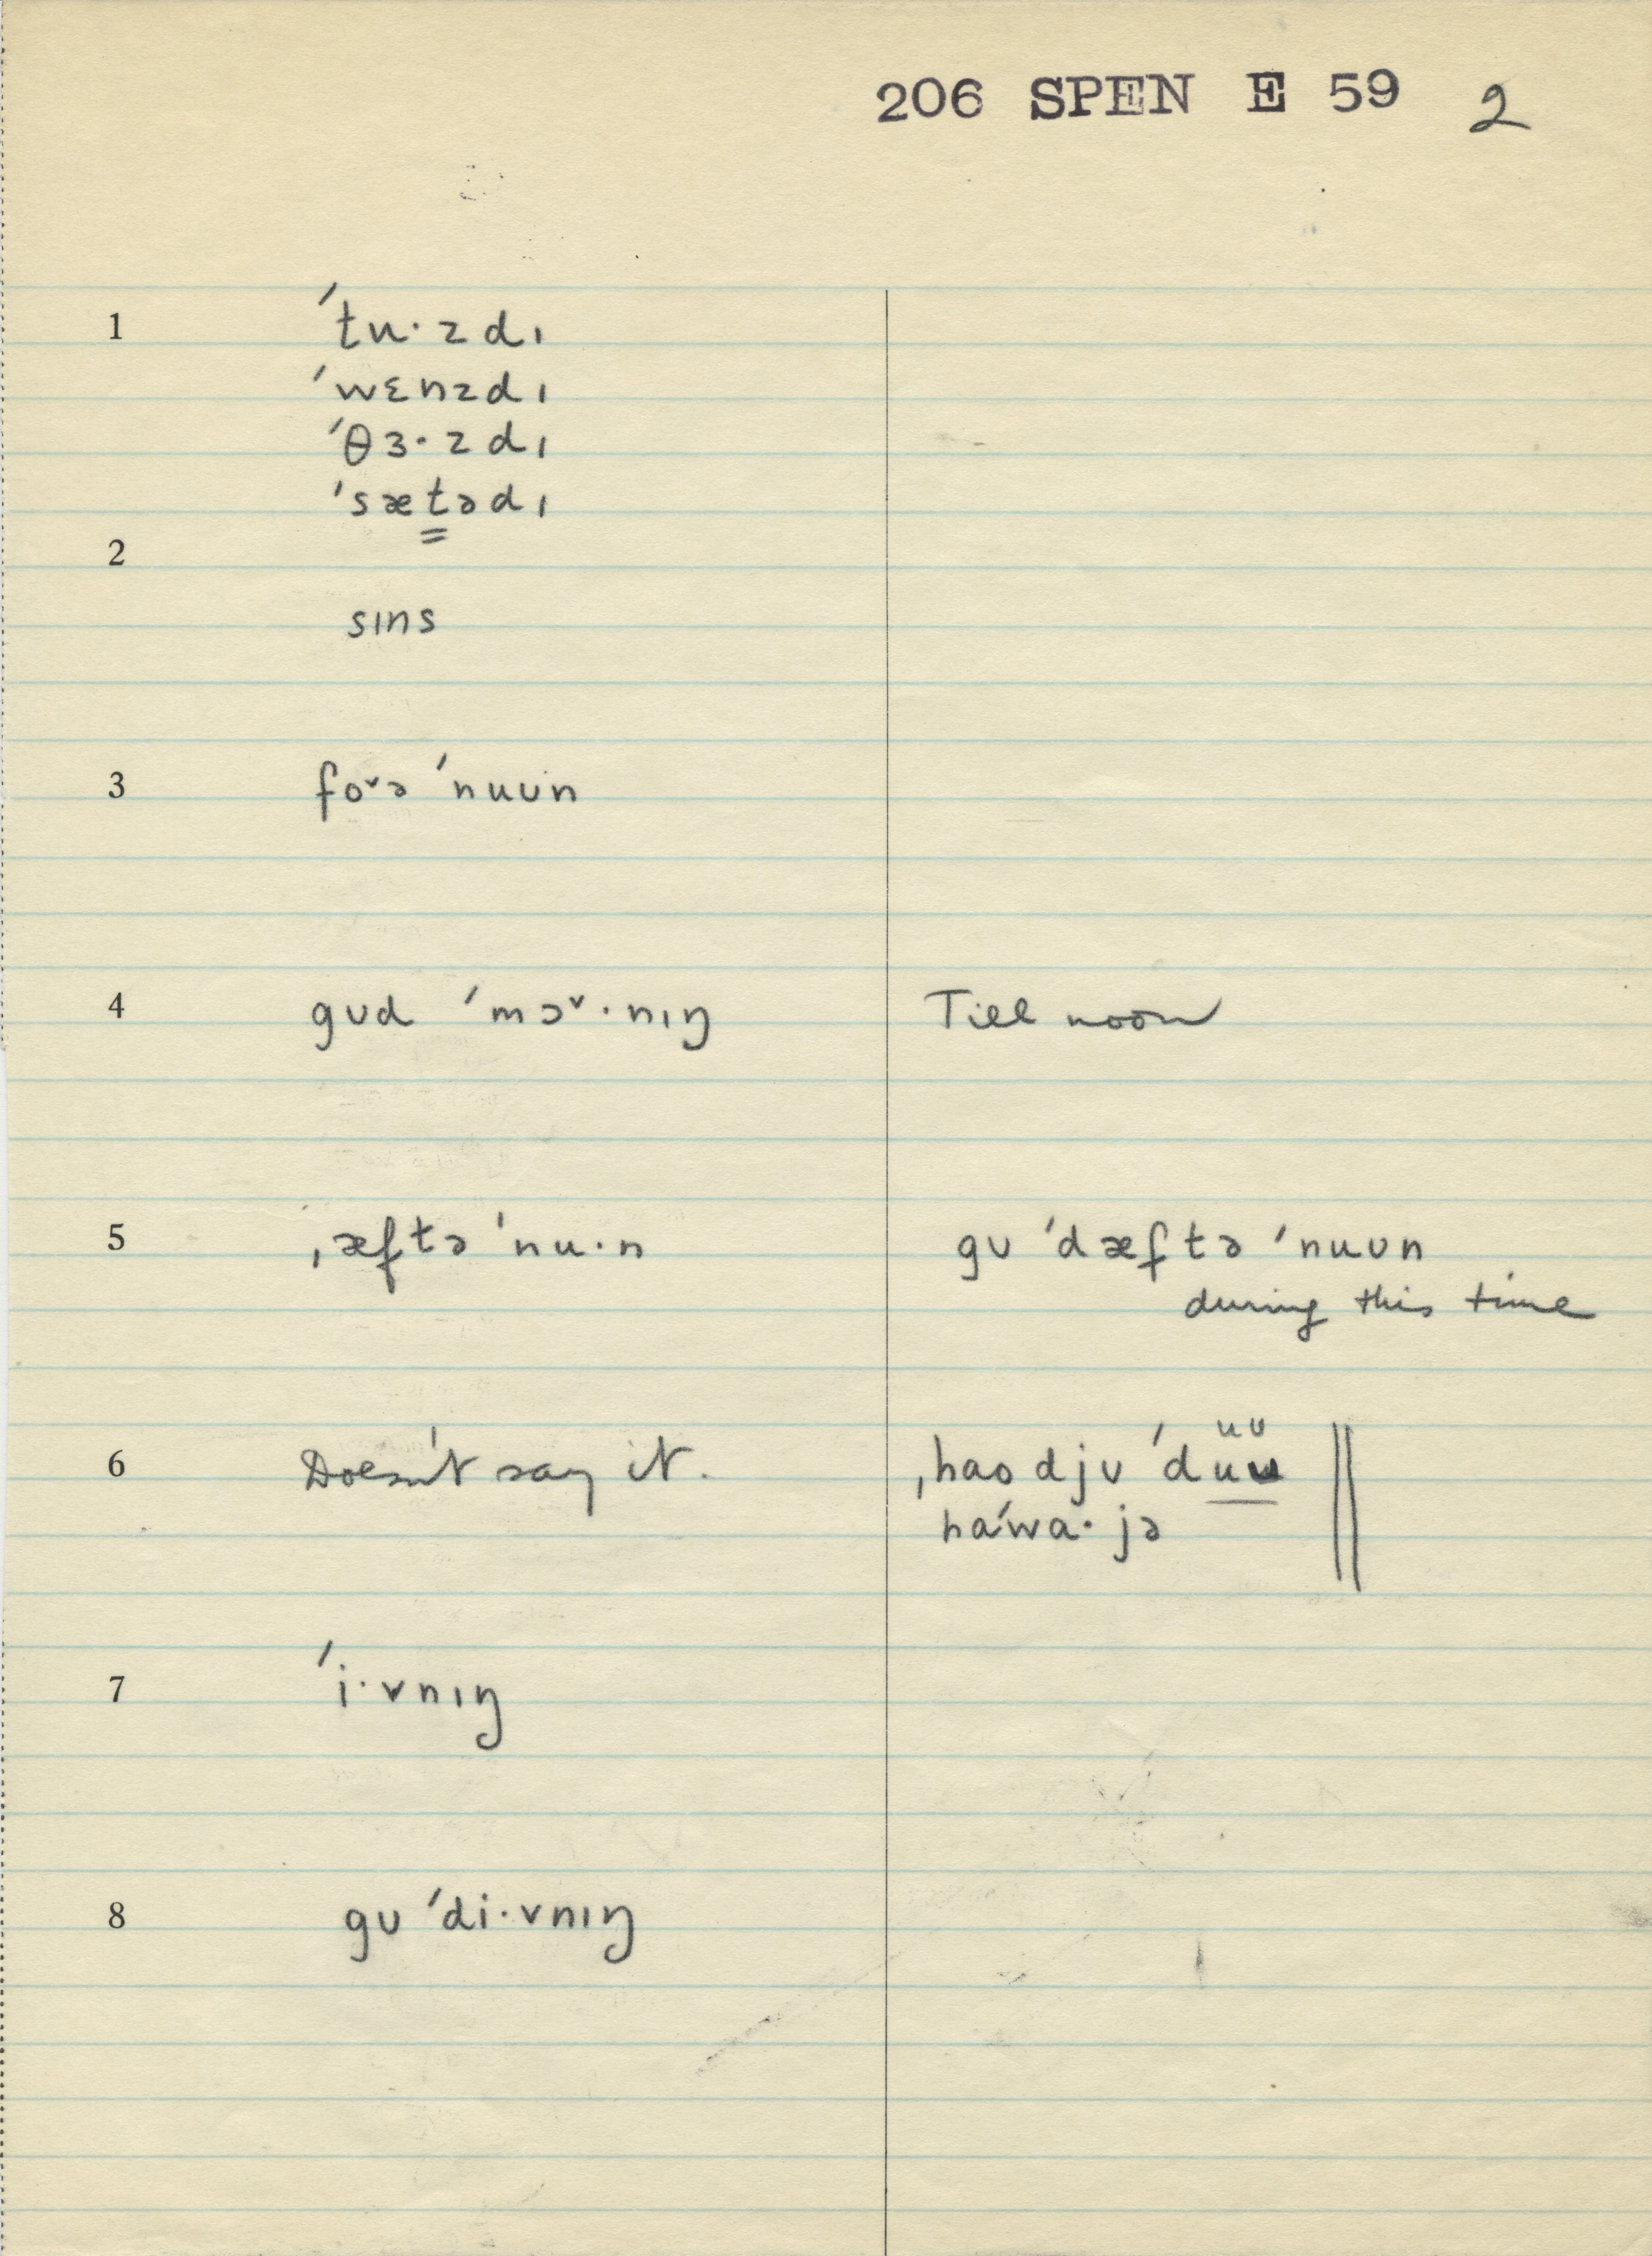 206 SPEN E 59 2
1 ˈtu·zdɪ
ˈwɛnzdɪ
ˈθɜ·zdɪ
ˈsætədɪ
2
sɪns
3 fo˅ə ˈnuʊn
4 gʊd ˈmɔ˅·nɪŋ Till noon
5 ˌæftə ˈnu·n gʊ ˈdæftə ˈnuʊn
during this time
6 Doesn't say it. ˌhaodjʊ ˈduʊ
haˈwa·jə
7 ˈi·vnɪŋ
8 gʊ ˈdi·vnɪŋ